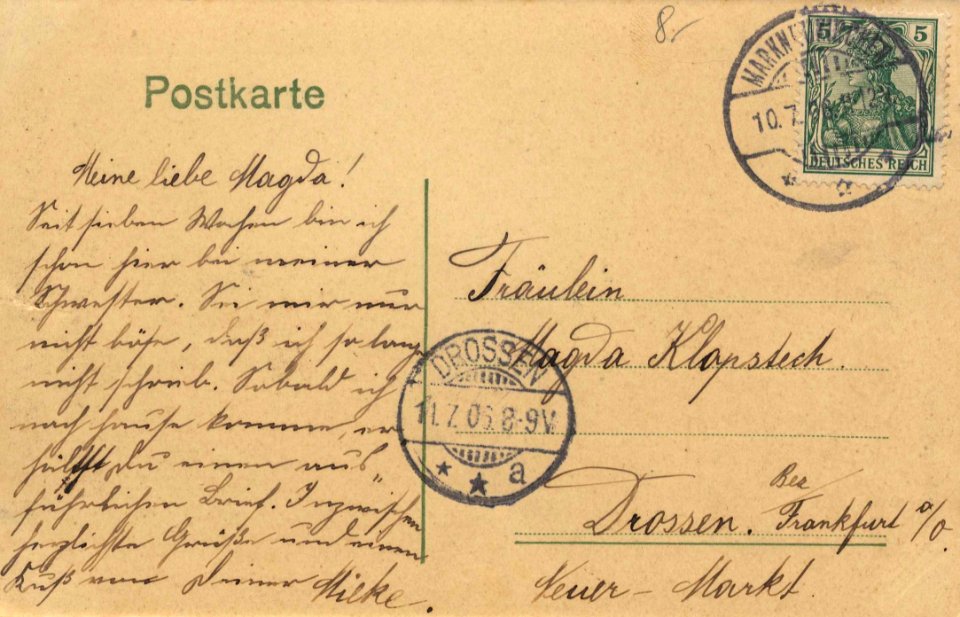 8.-
5 5
DEUTSCHES REICH
MARKNEUKIRCHEN
10.7.06
Postkarte
Meine liebe Magda!
Seit sieben Wochen bin ich
schon hier bei meiner
Schwester. Sei mir nur
nicht böse, daß ich so lang
nicht schrieb. Sobald ich
nach Hause komme, er
hältst Du einen aus
führlichen Brief. Inzwischen
herzlichste Grüße und einen
Kuß von Deiner Mieke.
Fräulein
Magda Klopstech.
Bez
Drossen. Frankfurt a/o.
Neuer-Markt.
DROSSEN
11.7.06.8-9V.
a